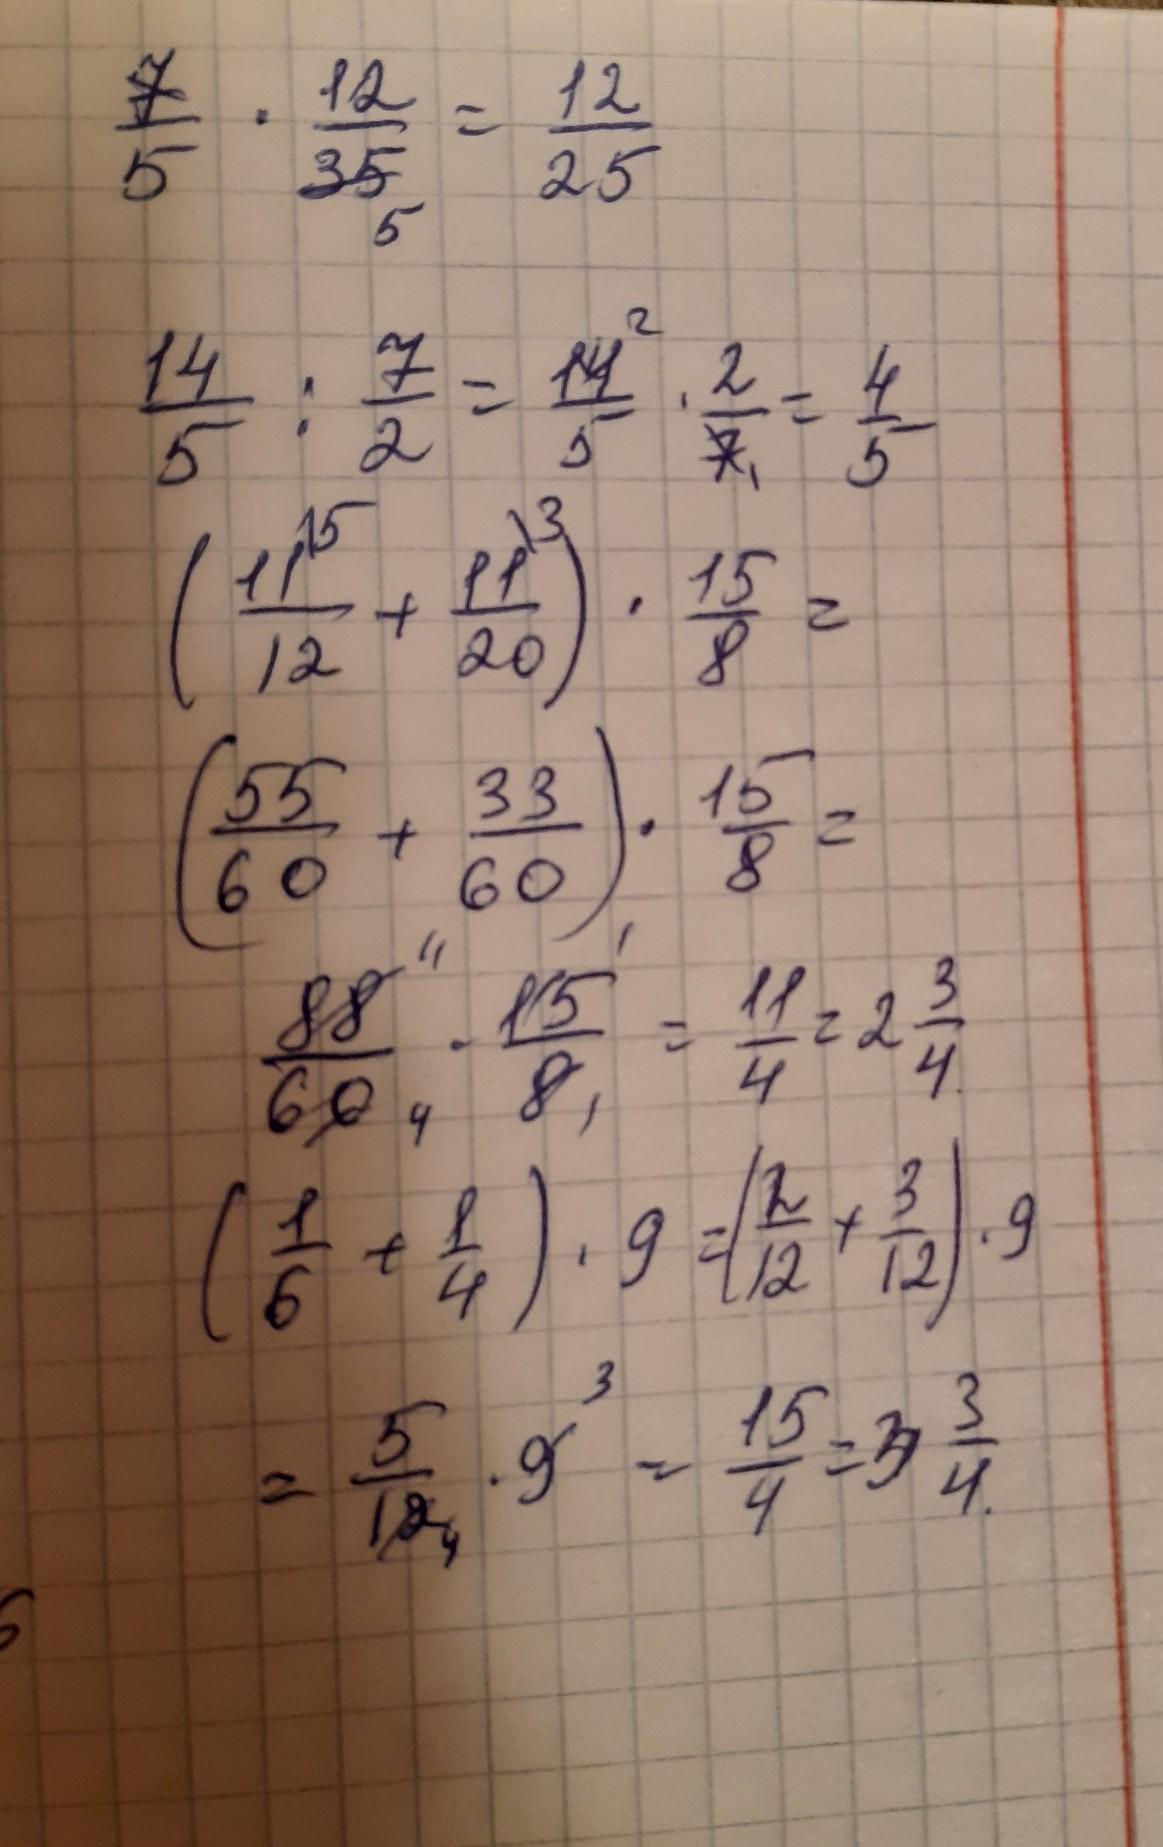 7/5 · 12/35 5 = 12/25
14/5 : 7/2 = 14 2/5 · 2/7 1 = 4/5
(11\5/12 + 11\3/20) · 15/8 =
(55/60 + 33/60) · 15/8 =
88 11/60 4 · 15 1/8 1 = 11/4 = 2 3/4
(1/6 + 1/4) · 9 = (2/12 + 3/12) · 9
= 5/12 4 · 9 3 = 15/4 = 3 3/4.